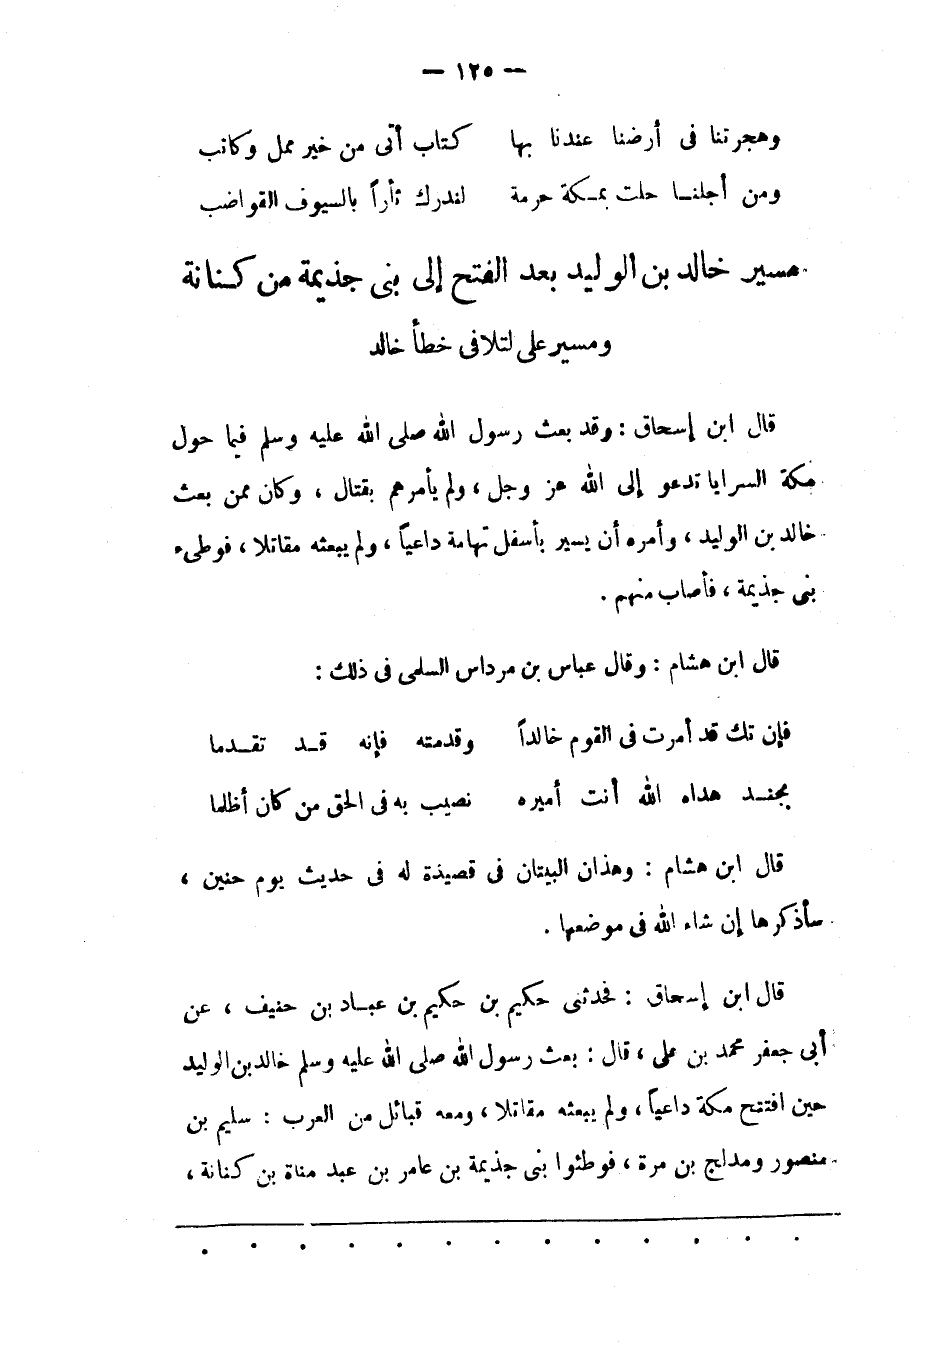 — ١٢٥ —
وهجرتنا فى أرضنا عندنا بها كتاب أتى من خير ممل وكاتب
ومن أجلنـا حلت بمـكة حرمة لندرك ثأراً بالسيوف القواضب
مسير خالد بن الوليد بعد الفتح إلى بنى جذيمة من كنانة
ومسير على لتلافى خطأ خالد
قال ابن إسحاق : وقد بعث رسول الله صلى الله عليه وسلم فيما حول
مكة السرايا تدعو إلى الله عز وجل ، ولم يأمرهم بقتال ، وكان ممن بعث
خالد بن الوليد ، وأمره أن يسير بأسفل تهامة داعياً ، ولم يبعثه مقاتلا ، فوطىء
بنى جذيمة ، فأصاب منهم .
قال ابن هشام : وقال عباس بن مرداس السلمى فى ذلك :
فإن تك قد أمرت فى القوم خالداً وقدمته فإنه قـد تقـدما
بجنـد هداه الله أنت أميره نصيب به فى الحق من كان أظلما
قال ابن هشام : وهذان البيتان فى قصيدة له فى حديث يوم حنين ،
سأذكرها إن شاء الله فى موضعها .
قال ابن إسحاق : فحدثنى حكيم بن حكيم بن عبـاد بن حنيف ، عن
أبى جعفر محمد بن على ، قال : بعث رسول الله صلى الله عليه وسلم خالد بن الوليد
حين افتتح مكة داعياً ، ولم يبعثه مقاتلا ، ومعه قبائل من العرب : سليم بن
منصور ومدلج بن مرة ، فوطئوا بنى جذيمة بن عامر بن عبد مناة بن كنانة ،
. . . . . . . . . . . . .